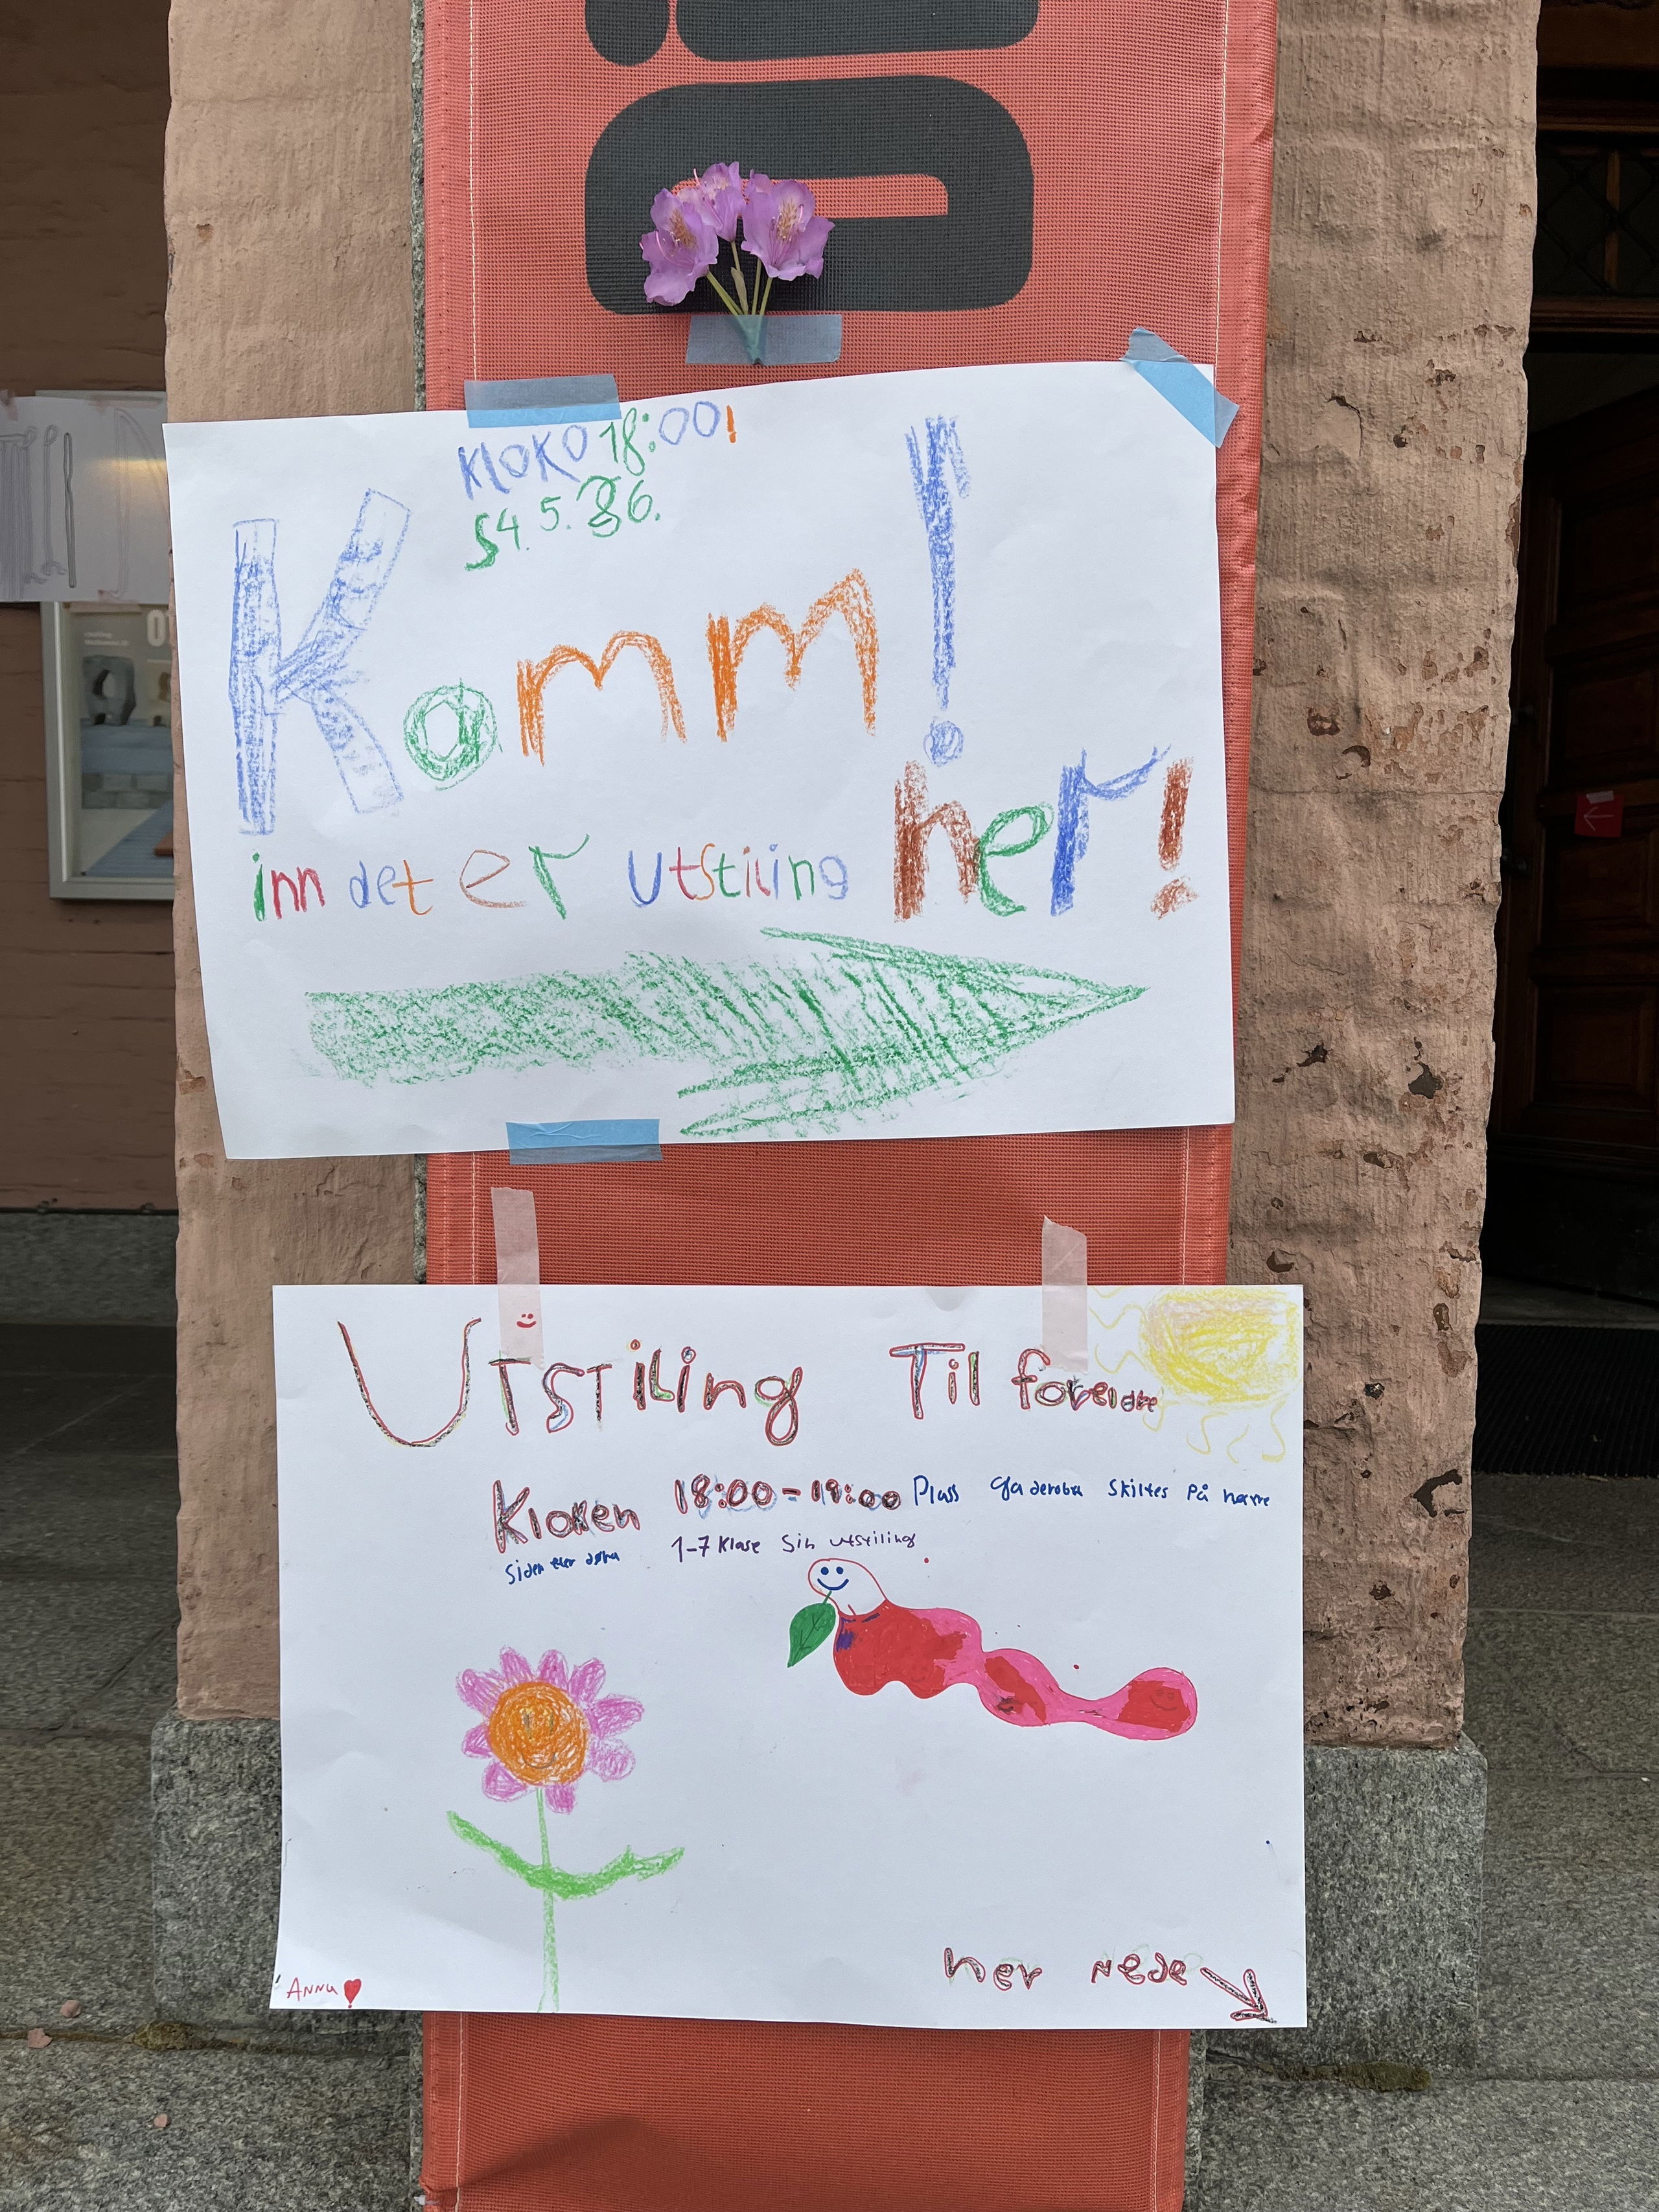 KloKO 18:00!
Komm!
inn det er utstiling her!
UTSTiLing Til foreldre
Kloken 18:00-19:00 Plass Gaderoba skiltes på
1-7 Klase Sin utstiling
her nede
ANNU